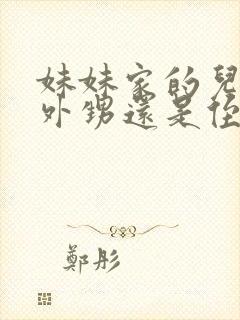 妹妹家的兒
外甥還是侄
鄭彤